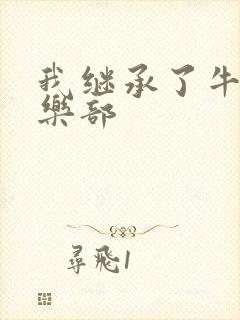 我继承了牛
樂部
尋飛1